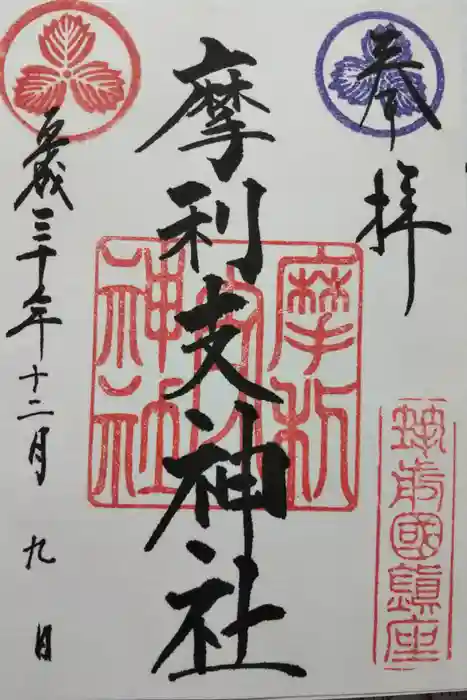 奉拝
越前國鎮座
摩利支神社
摩利支神社
平成三十年十二月九日